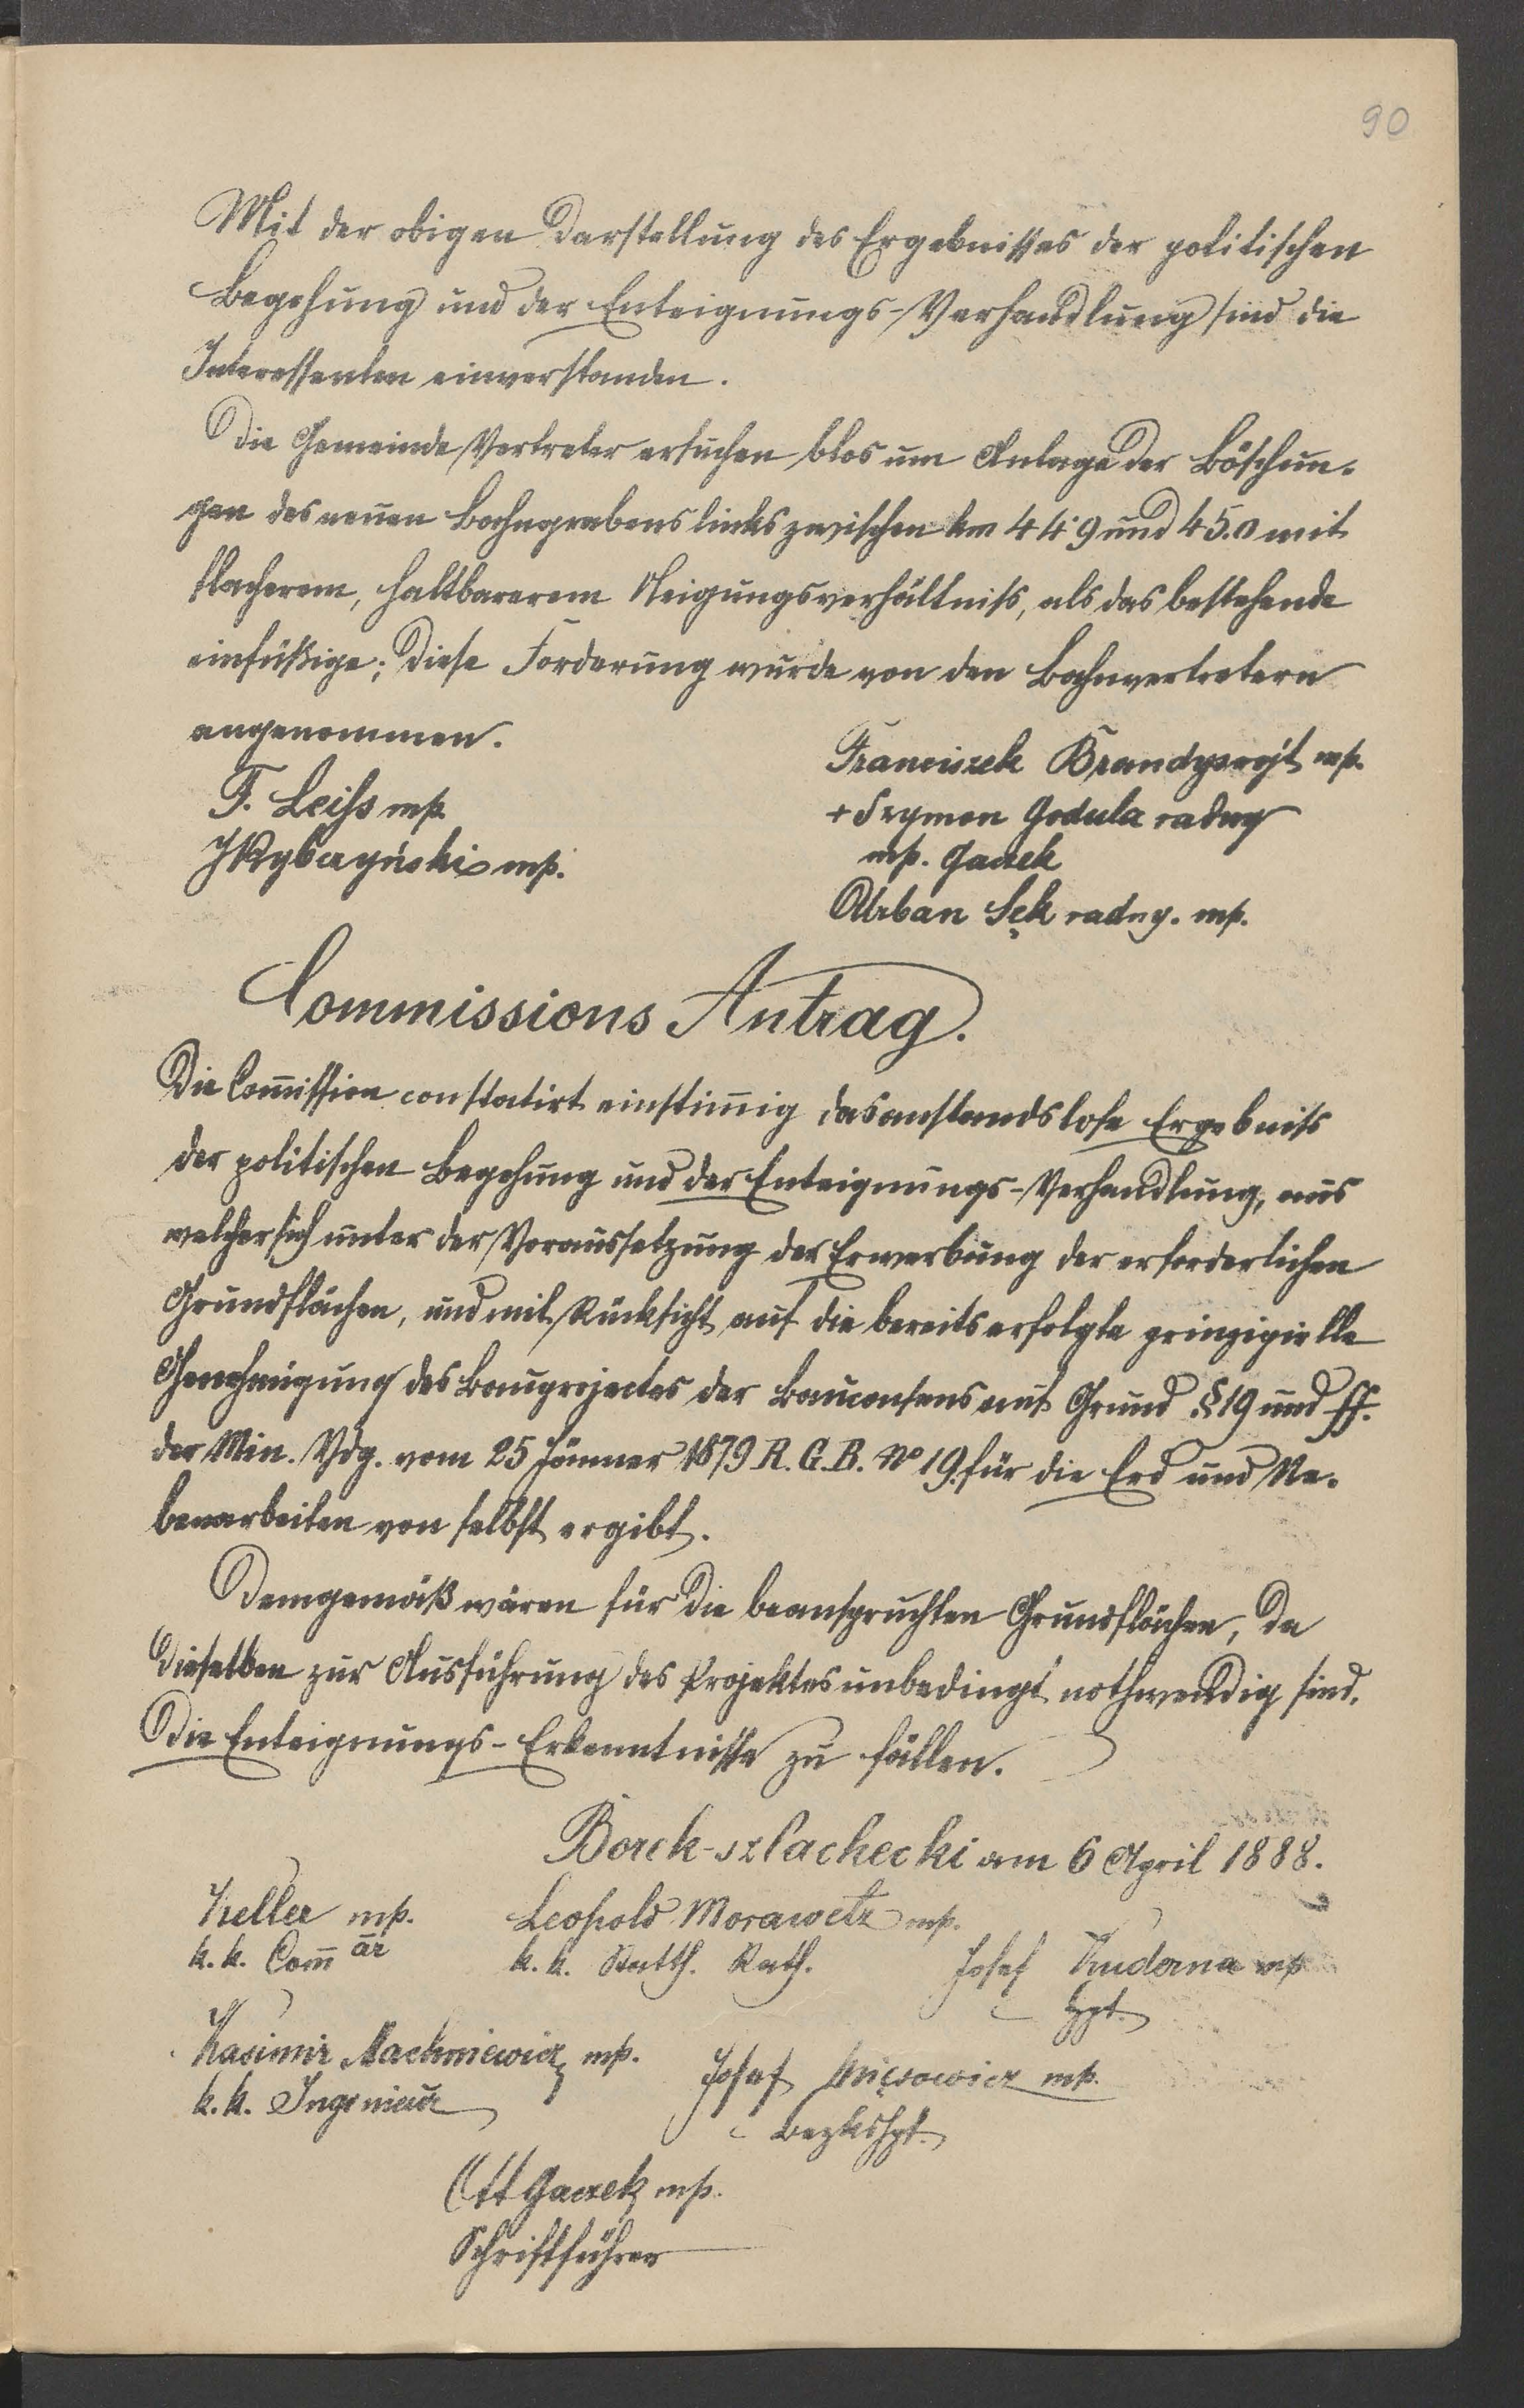 90
Mit der obigen Darstellung des Ergebnisses der politischen
Begehung und der Enteignungs-Verhandlung sind die
Interessenten einverstanden.
Die Gemeinde Vertreter ersuchen blos um Anlage der Böschun-
gen des neuen Bahngrabens links zwischen km 44·9 und 45.0 mit
flacherem, haltbarerem Neigungsverhältniss, als das bestehende
einfüßige; diese Forderung wurde von den Bahnvertretern
angenommen.
F. Leiss mp.
JRybczyński mp.
Franciszek Brandys wójt mp.
+ Szymon Godula radny
mp. Gaczek
Urban Sęk radny. mp.
Commissions Antrag.
Die Com̄ission constatirt einstim̄ig das anstandslose Ergebniss
der politischen Begehung und der Enteignungs-Verhandlung, aus
welcher sich unter der Voraussetzung der Erwerbung der erforderlichen
Grundflächen, und mit Rücksicht auf die bereits erfolgte prinzipielle
Genehmigung des Bauprojectes der Bauconsens auf Grund § 19 und ff.
der Min. Vdg. vom 25 Jänner 1879 R. G. B. No 19. für die Erd und Ne-
benarbeiten von selbst ergibt.
Demgemäß wären für die beanspruchten Grundflächen, da
dieselben zur Ausführung des Projektes unbedingt nothwendig sind,
die Enteignungs-Erkenntnisse zu fällen.
Borek-szlachecki am 6 April 1888.
Keller mp.
k. k. Com̄är
Leopold Morawetz mp.
k. k. Statth. Rath.
Josef Kuderna mp
Hpt.
Kasimir Machniewicz mp.
k. k. Ingenieur
Josef mp.
Bezkshpt.
Ott Gaczek mp.
Schriftführer